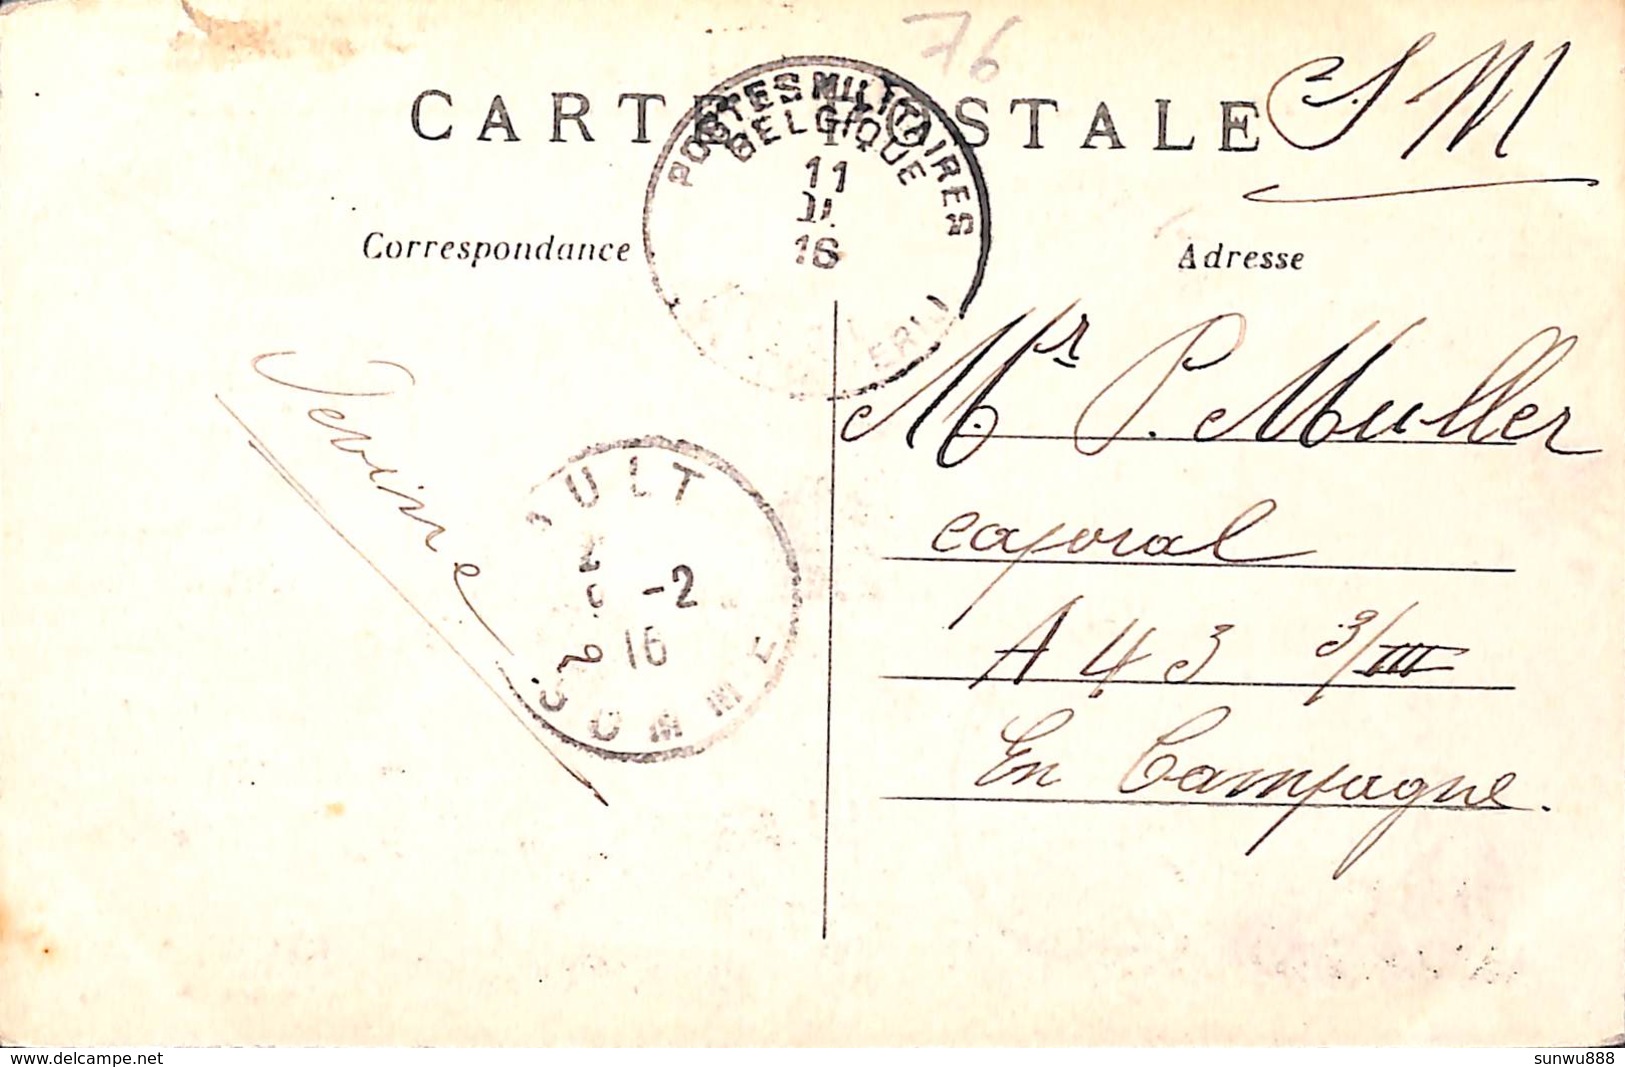 76
CARTE POSTALE
S M
POSTES MILITAIRES
BELGIQUE
11
II
16
Correspondance
Adresse
Mr P. Muller
caporal
A 43 3/III
En Campagne.
AULT
-2
16
SOMME
delcampe.net
sunwu888